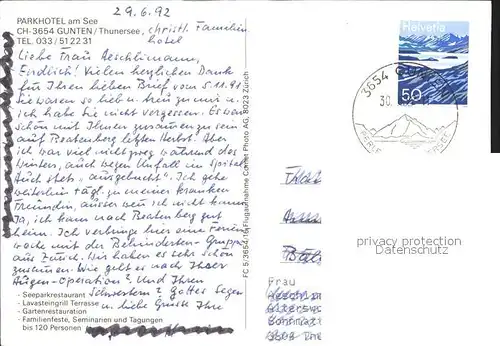 29.6.92
PARKHOTEL am See
CH-3654 GUNTEN/Thunersee, christl. Familien-
TEL. 033/512231 hotel
Liebe Frau Aeschlimann,
Endlich! Vielen herzlichen Dank
für Ihren lieben Brief vom 5.11.91
Sie waren so lieb u. treu zu mir u.
ich habe Sie nicht vergessen. Es war
schön mit Ihnen zusammen zu sein
auf Beatenberg letzten Herbst. Aber
ich war viel nicht zweg während des
Winters, auch wegen Unfall im Spital.
Auch stets "ausgebucht". Ich gehe
weiterhin tägl. zu meiner kranken
Freundin, ausser wenn ich nicht kann.
Ja, ich kann nach Beatenberg gut
heim. Ich verbringe hier eine Ferien-
woche mit der Behinderten-Gruppe
aus Zürich. Wir haben es sehr schön
zusammen. Wie geht es nach Ihrer
Augen-Operation? Und Ihren
Schwestern? Gottes Segen
- Seeparkrestaurant
- Lavasteingrill Terrasse u. liebe Grüsse Ihre
- Gartenrestauration
- Familienfeste, Seminarien und Tagungen
bis 120 Personen
FC 5/3654/16 Flugaufnahme Comet Photo AG, 8023 Zürich
Helvetia
50
3654
30.
Frau
privacy protection
Datenschutz